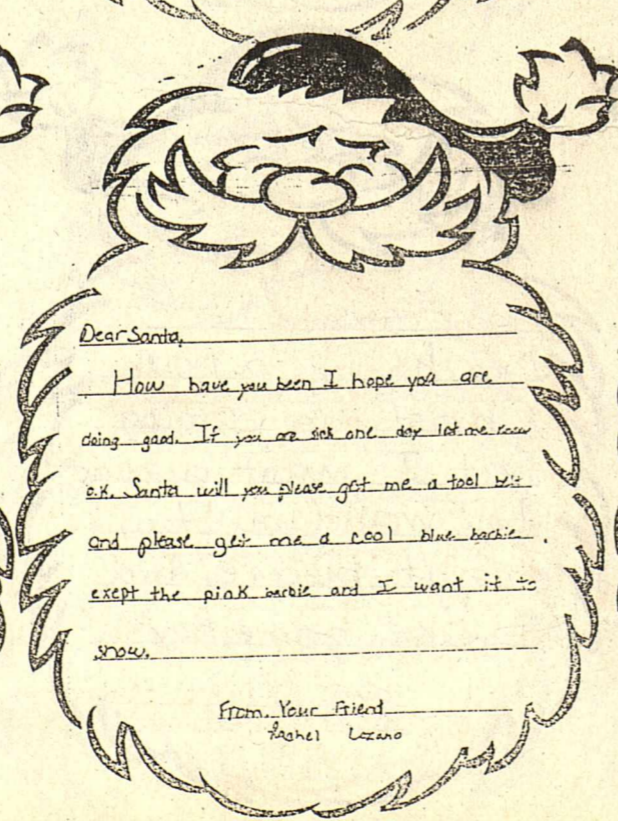 Dear Santa,
How have you been I hope you are
doing good. If you are sick one day let me know
o.k. Santa will you please get me a tool belt
and please get me a cool blue barbie.
exept the pink barbie and I want it to
snow.
From, Your Friend
Rachel Lozano